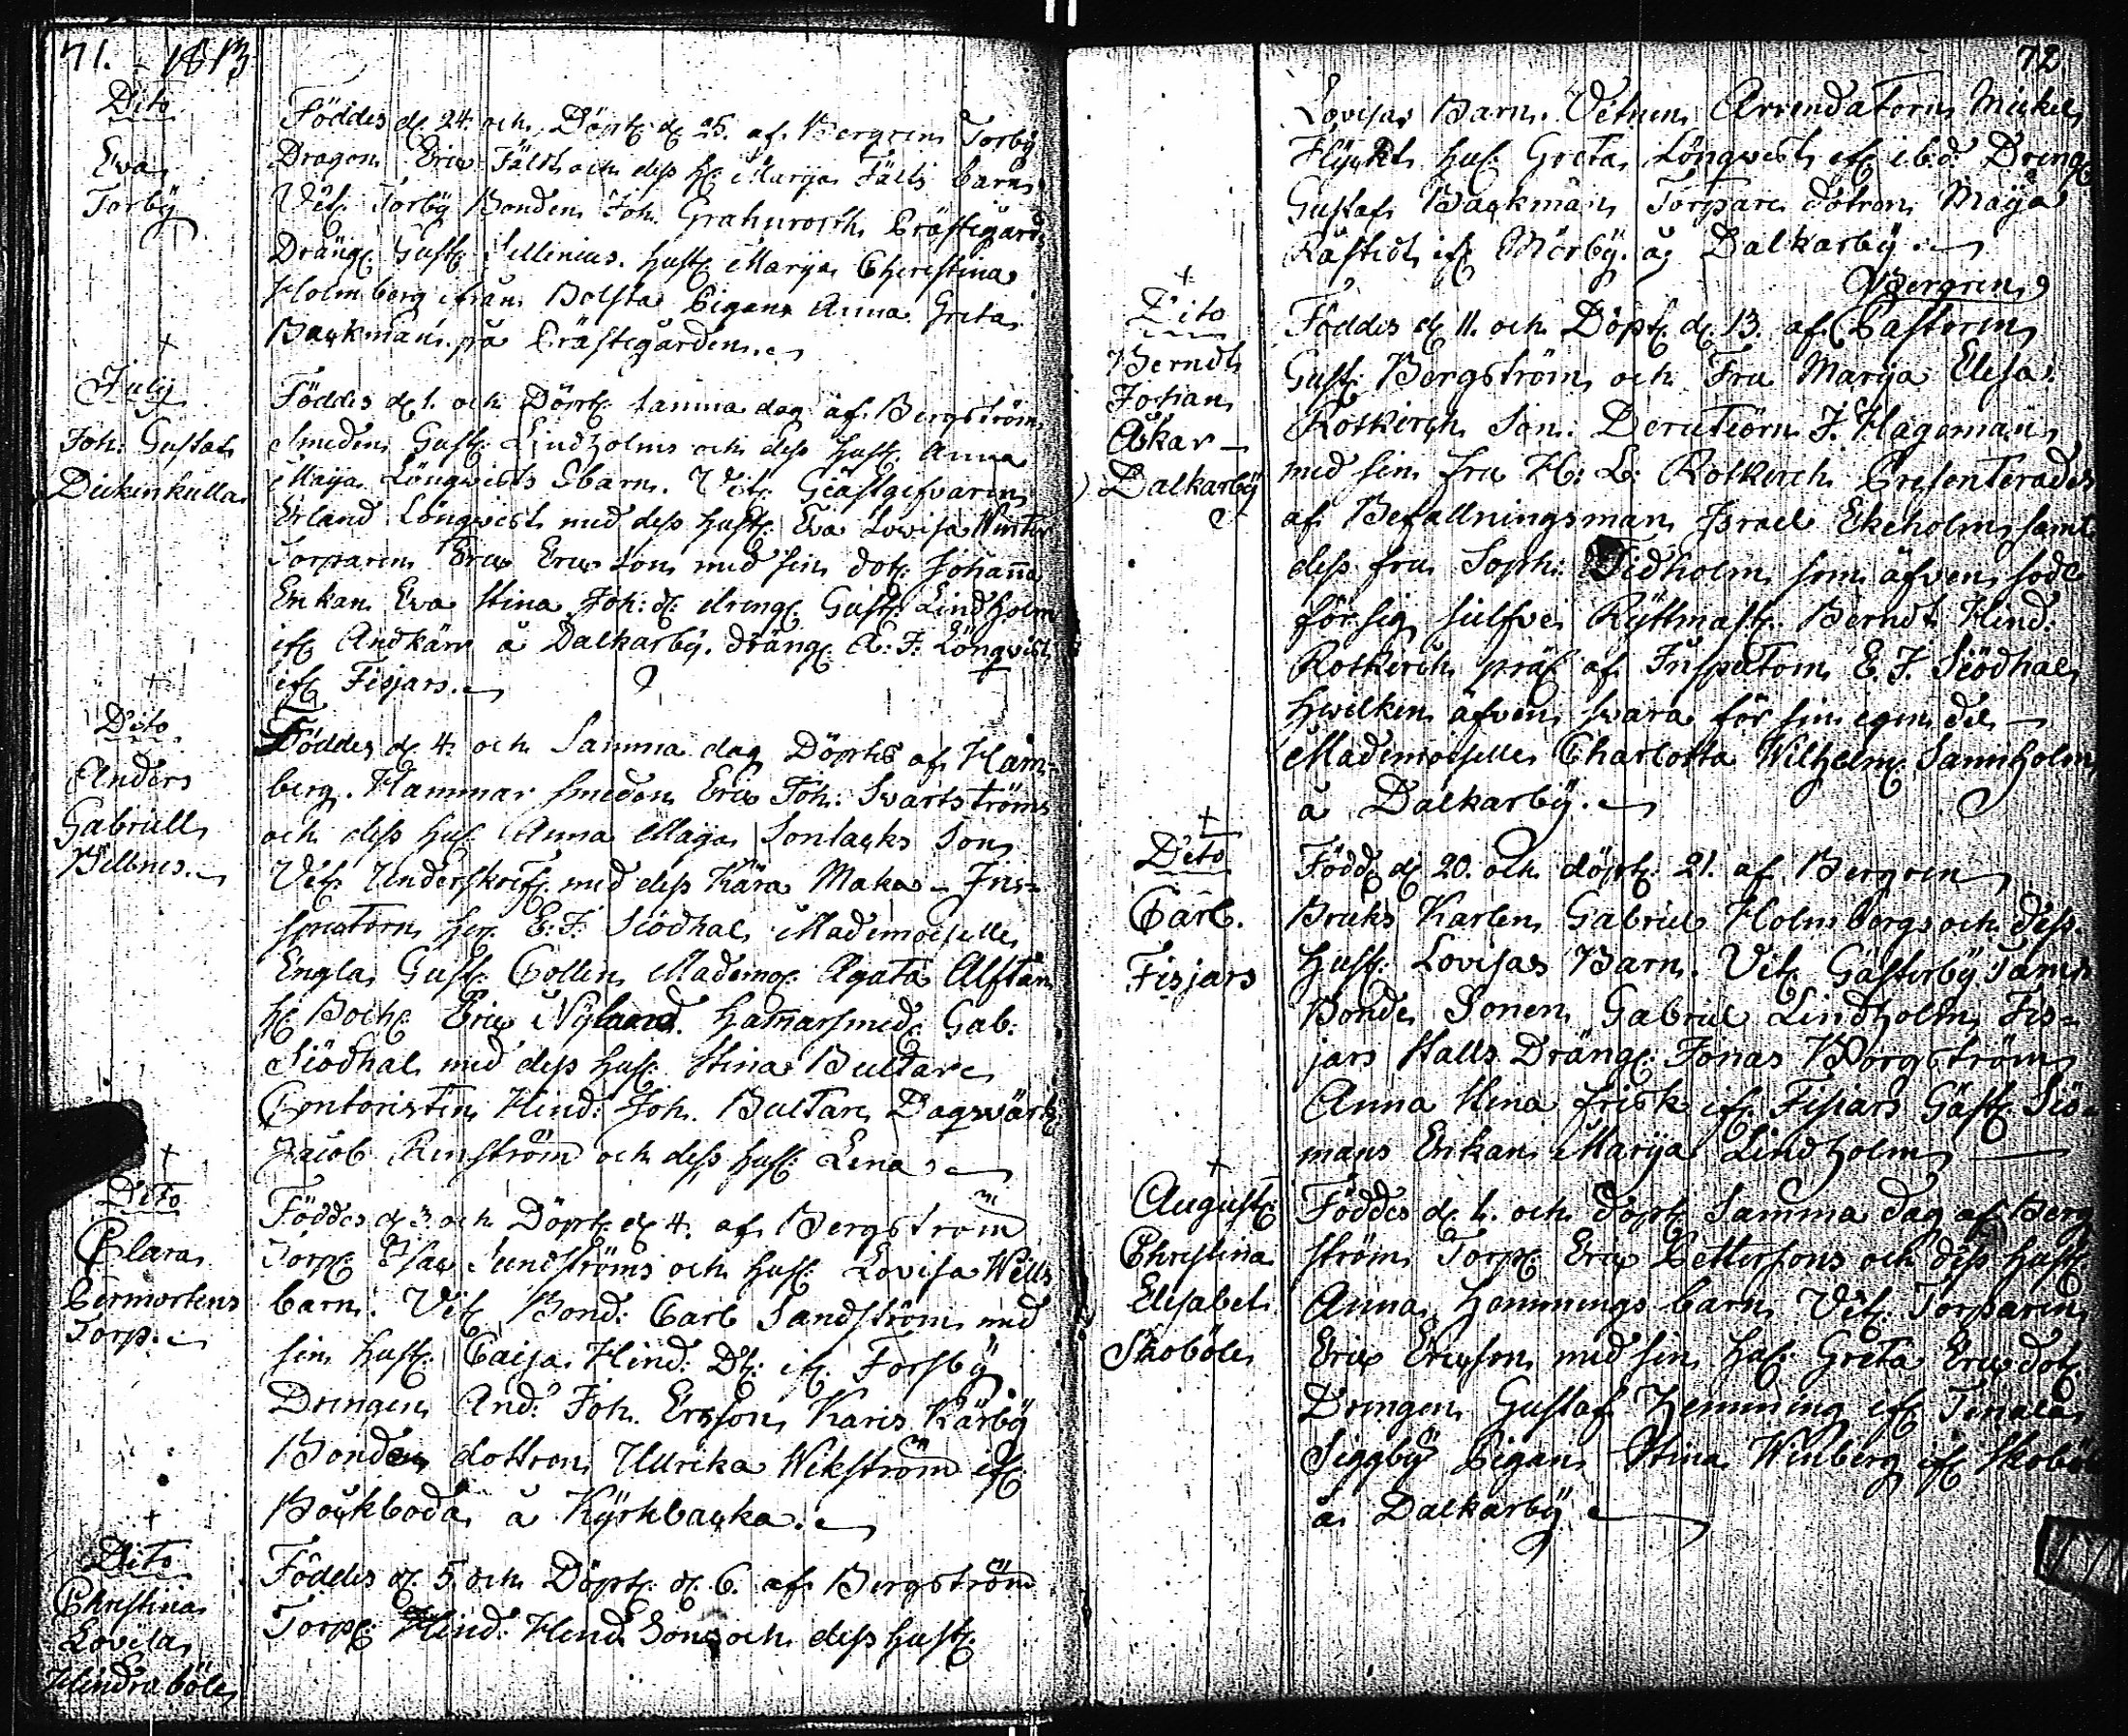 71. 1813
Dito
Eva
Torby
Föddes d. 24. och Döpt d. 25. af Bergren Torby
Dragon Eric Fält och dess H. Marya Fälts barn
Vit. Torby Bonden Joh. Grahnroth Prästegårds
Dräng Gust. Sellenius. Hust. Marya Christina
Holmberg ifrån Bolsta Pigan Anna Greta
Backman på Prästegården.
July
Joh. Gustaf
Dickenkulla
Föddes d. 1. och Döpt. samma dag af Bergström
Smeden Gust. Lindholms och dess Hust. Anna
Maya Löngvists barn. Vit. Giästgifvaren
Erland Löngvist med dess Hust. Eva Lovisa Winter
Torparen Eric Ericson med sin dot. Johanna
Enkan Eva Stina Joh: d: dreng Gust. Lindholm
if. Andkärr å Dalkarby. dräng A: F: Löngvist
if. Fisjars.
Dito
Anders
Gabriell
Billnes.
Föddes d. 4. och Samma dag Döptes af Ham=
berg. Hammar smeden Eric Joh. Svartströms
och dess Hus. Anna Maya Sonlacks Son
Vit. Underskrif. med dess Kära Maka - Ins=
spectorn her. E: F: Siödhal Mademoiselle
Engla Gust. Collen Mademo. Agata Alftan
H. Boch. Eric Nyland. Hamarsmed. Gab.
Siödhal med dess Hus. Stina Bultare
Contoristen Hind: Joh. Bultare Dagsvärk.
Jacob Renström och dess Hus. Lena
Dito
Clara
Permortens
Torp.
Föddes d. 3. och Döpt d. 4. af Bergström
Torp. Isac Sundströms och Hus. Lovisa Wells
barn. Vit. Bond: Carl Sandström med
sin Hust. Caisa Hind: Dt: if. Forsby
Drengen And: Joh. Erson Karis Kärby
Bonden dottron Ullrika Wikström if.
Böckboda å Kyrkbacka.
Dito
Christina
Lovisa
Hindrsböle
Föddes d. 5. och Döpt. d. 6. af Bergström
Torp. Hind: Hend. Sons och dess Hust.
72
Lovisas Barn. Vitnen Arrendatorn Mickel
Flyckt Hus. Greta Löngvist if. ibd: Dreng.
Gustaf Backman Torpare dotron Maya
Råstedt if. Mörby å Dalkarby.
Bergren
Dito
Berndt
Johan
Åskar
Dalkarby
Föddes d. 11. och Döpt d. 13. af Pastoren
Gust. Bergström och Fru Marya Elisa:
Rotkirch Son: Derutiörn J. Hagaman
med sin fru H: L: Rotkirch Presenterades
af Befallningsman Israel Ekeholm samt
dess fru Soph: Tidholm som äfven sodl
för sig sielfve Ryttmäst. Berndt Hind:
Rotkirch präs. af Inspectorn E. F. Siödhal
Hvilken äfven svara för sin egen del
Mademoiselle Charlotta Wilhelm. Sannholm
å Dalkarby.
Dito
Carl.
Fisjars
Född d. 20. och döpt. 21. af Bergren
Bruks Karlen Gabriel Holmbergs och dess
Hust. Lovisas Barn. Vit. Gästerby Tams
Bonde Sonen Gabriel Lindholm Fis=
jars Stalls Dräng. Jonas Borgström
Anna Stina Frisk if. Fisiars Gäst. Siö=
mans Enkan Marya Lindholm
August.
Christina
Elisabet
Skoböle
Föddes d. 1. och döpt. Samma dag af Berg
ström Torp. Eric Pettersons och dess Hust.
Anna Hemmings barn Vit. Torparen
Eric Ericson med sin Hus. Greta Eric dot.
Drengen Gustaf Hemming if. Tenala
Siggby Pigan Stina Winberg if. Skoböle
å Dalkarby